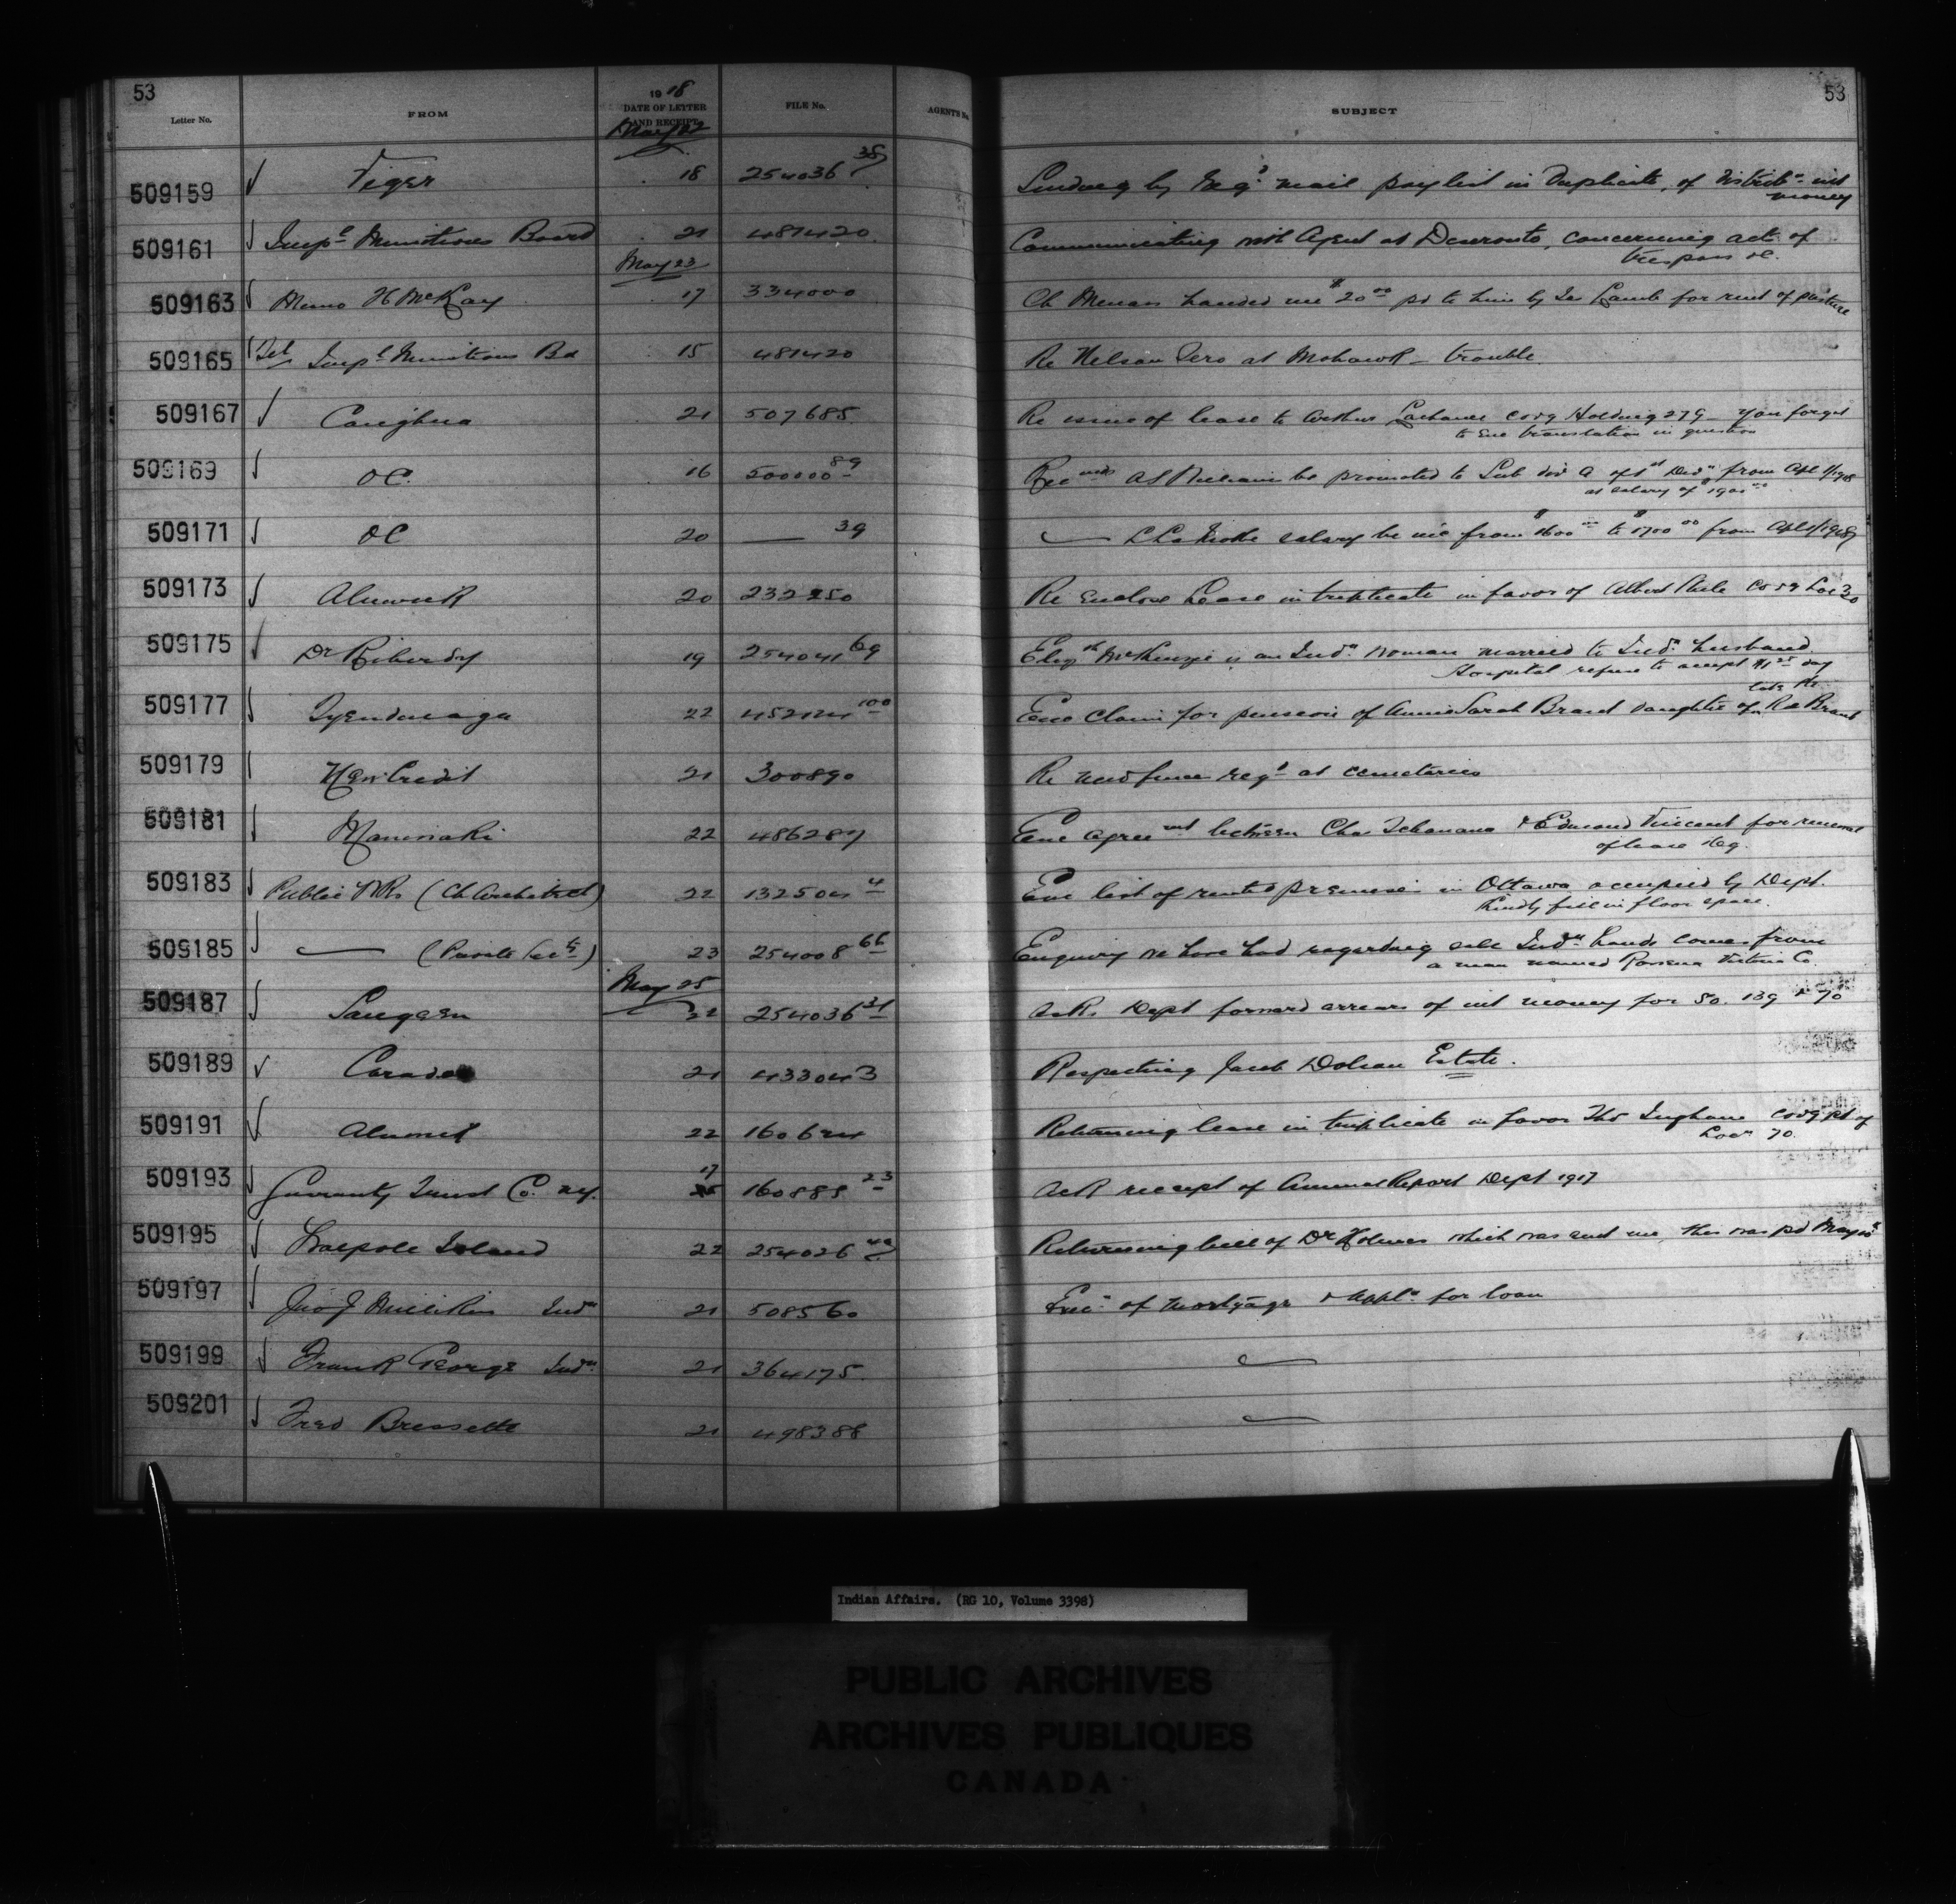 53
Letter No. FROM 1918 DATE OF LETTER AND RECEIPT FILE No. AGENT'S No. SUBJECT 53
May 22
509159 Tiger 18 254036 38 Sending by Reg'd mail paylist in Duplicate, of Distribn int
money
509161 Impl Munitions Board 21 481420 Communicating with Agent at Deseronto, concerning act of
trespass &c.
May 23
509163 Memo H McKay 17 334000 Ch Menass handed me $20.00 pd to him by Jas Lamb for rent of pasture
509165 Tel Impl Munitions Bd 15 481420 Re Nelson Zero at Mohawk trouble
509167 Caughna 21 507685 Re issue of lease to Arthur Lachance covg Holding 279 you forgot
to enc translation in question
509169 OC. 16 500000 89 Recmds be promoted to Sub div A of 1st Divn from Apl 1/1918
at salary of $1900.00
509171 OC 20 — 39 — salary be inc from $1600.00 to $1700.00 from Apl 1/1918
509173 Alnwick 20 232250 Re Enclose Lease in triplicate in favor of Albert Steele covg Loc 30
509175 Dr Riberdy 19 254041 69 Elizth McKenzie is an Indn woman married to Indn husband.
Hospital refuse to accept $1.25 day
509177 Tyendinaga 22 452124 100 Enc Claim for pension of Annie Sarah Brant daughter of late Pte R Brant
509179 New Credit 21 300890 Re new fence reqd at cemeteries
509181 Maniwaki 22 486287 Enc agreemt between Chas Tchanana & Edmond Vincent for renewal
of lease
509183 Public Wks (Ch Architect) 22 132504 4 Enc list of rented premises in Ottawa occupied by Dept.
Kindly fill in floor space.
509185 — (Private Secty) 23 254008 66 Enquiry we have had regarding sale Indn lands comes from
a man named Victoria Co.
May 25
509187 Saugeen 22 254036 31 Asks Dept forward arrears of int money for 50. 139 & 70
509189 Caradoc 21 433043 Respecting Jacob Dolson Estate.
509191 22 160624 Returning lease in triplicate in favor Thos Ingham covg pt of
Locn 70
509193 Guaranty Trust Co. N.Y. 17 160888 23 Ack receipt of Annual Report Dept 1917
509195 Walpole Island 22 254026 40 Returning bill of Dr Holmes which was sent me, this was pd May
509197 Jno J Millikin Indn 21 508560 Exec. of mortgage & Appln for loan
509199 Frank George Indn 21 364175 —
509201 Fred Bressette 21 498388 —
Indian Affairs. (RG 10, Volume 3398)
PUBLIC ARCHIVES
ARCHIVES PUBLIQUES
CANADA